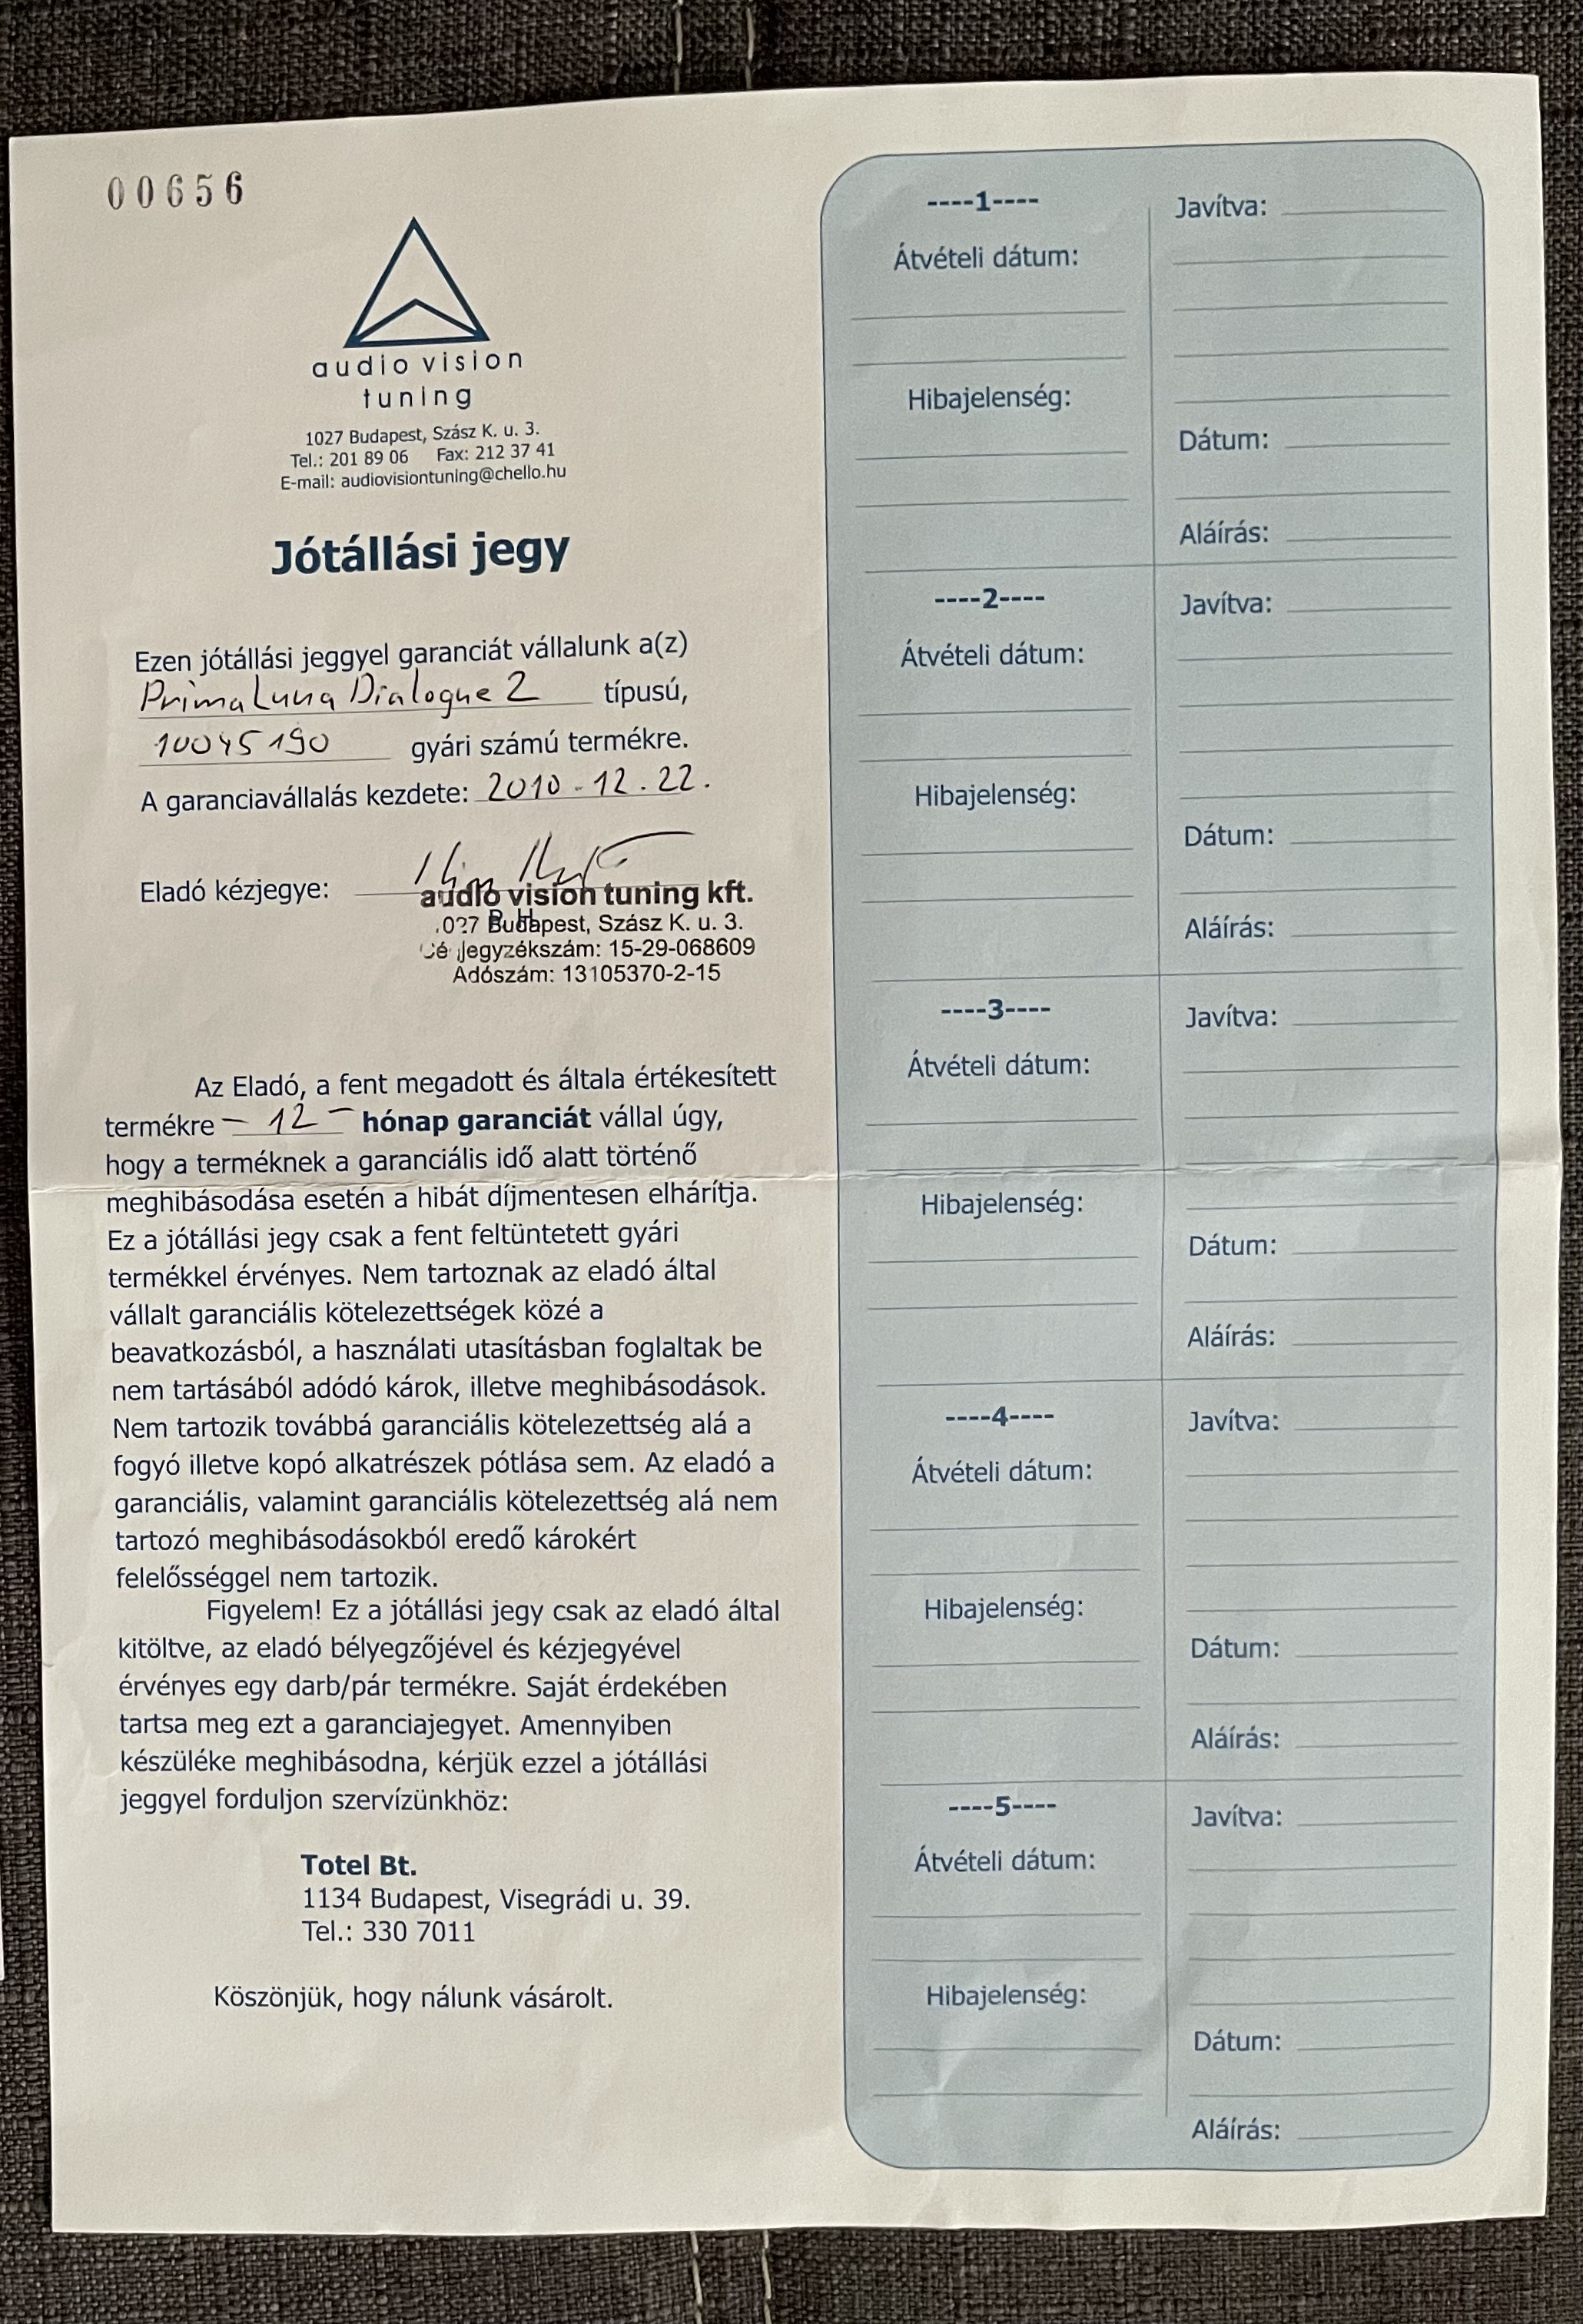 00656
audio vision
tuning
1027 Budapest, Szász K. u. 3.
Tel.: 201 89 06 Fax: 212 37 41
E-mail: audiovisiontuning@chello.hu
Jótállási jegy
Ezen jótállási jeggyel garanciát vállalunk a(z)
PrimaLuna Dialogue 2 típusú,
10045190 gyári számú termékre.
A garanciavállalás kezdete: 2010-12.22.
Eladó kézjegye:
audio vision tuning kft.
P.H.
027 Budapest, Szász K. u. 3.
jegyzékszám: 15-29-068609
Adószám: 13105370-2-15
Az Eladó, a fent megadott és általa értékesített
termékre – 12 – hónap garanciát vállal úgy,
hogy a terméknek a garanciális idő alatt történő
meghibásodása esetén a hibát díjmentesen elhárítja.
Ez a jótállási jegy csak a fent feltüntetett gyári
termékkel érvényes. Nem tartoznak az eladó által
vállalt garanciális kötelezettségek közé a
beavatkozásból, a használati utasításban foglaltak be
nem tartásából adódó károk, illetve meghibásodások.
Nem tartozik továbbá garanciális kötelezettség alá a
fogyó illetve kopó alkatrészek pótlása sem. Az eladó a
garanciális, valamint garanciális kötelezettség alá nem
tartozó meghibásodásokból eredő károkért
felelősséggel nem tartozik.
Figyelem! Ez a jótállási jegy csak az eladó által
kitöltve, az eladó bélyegzőjével és kézjegyével
érvényes egy darb/pár termékre. Saját érdekében
tartsa meg ezt a garanciajegyet. Amennyiben
készüléke meghibásodna, kérjük ezzel a jótállási
jeggyel forduljon szervízünkhöz:
Totel Bt.
1134 Budapest, Visegrádi u. 39.
Tel.: 330 7011
Köszönjük, hogy nálunk vásárolt.
----1----
Átvételi dátum:
Hibajelenség:
Javítva:
Dátum:
Aláírás:
----2----
Átvételi dátum:
Hibajelenség:
Javítva:
Dátum:
Aláírás:
----3----
Átvételi dátum:
Hibajelenség:
Javítva:
Dátum:
Aláírás:
----4----
Átvételi dátum:
Hibajelenség:
Javítva:
Dátum:
Aláírás:
----5----
Átvételi dátum:
Hibajelenség:
Javítva:
Dátum:
Aláírás: